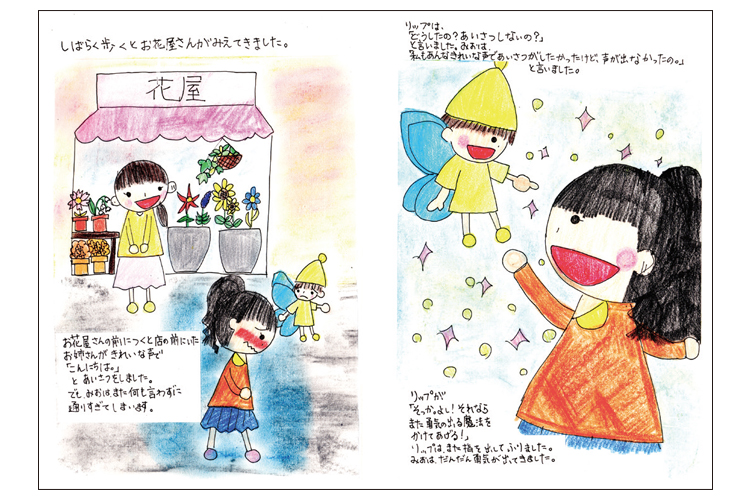 しばらく歩くとお花屋さんがみえてきました。
花屋
お花屋さんの前につくと店の前にいた
お姉さんがきれいな声で
「こんにちは。」
とあいさつをしました。
でも、みおは、また何も言わずに
通りすぎてしまいます。
リップは、
「どうしたの?あいさつしないの?」
と言いました。みおは、
「私もあんなきれいな声であいさつがしたかったけど、声が出なかったの。」
と言いました。
リップが
「そっか。よし!それなら
また勇気の出る魔法を
かけてあげる!」
リップは、また指を出してふりました。
みおは、だんだん勇気が出てきました。